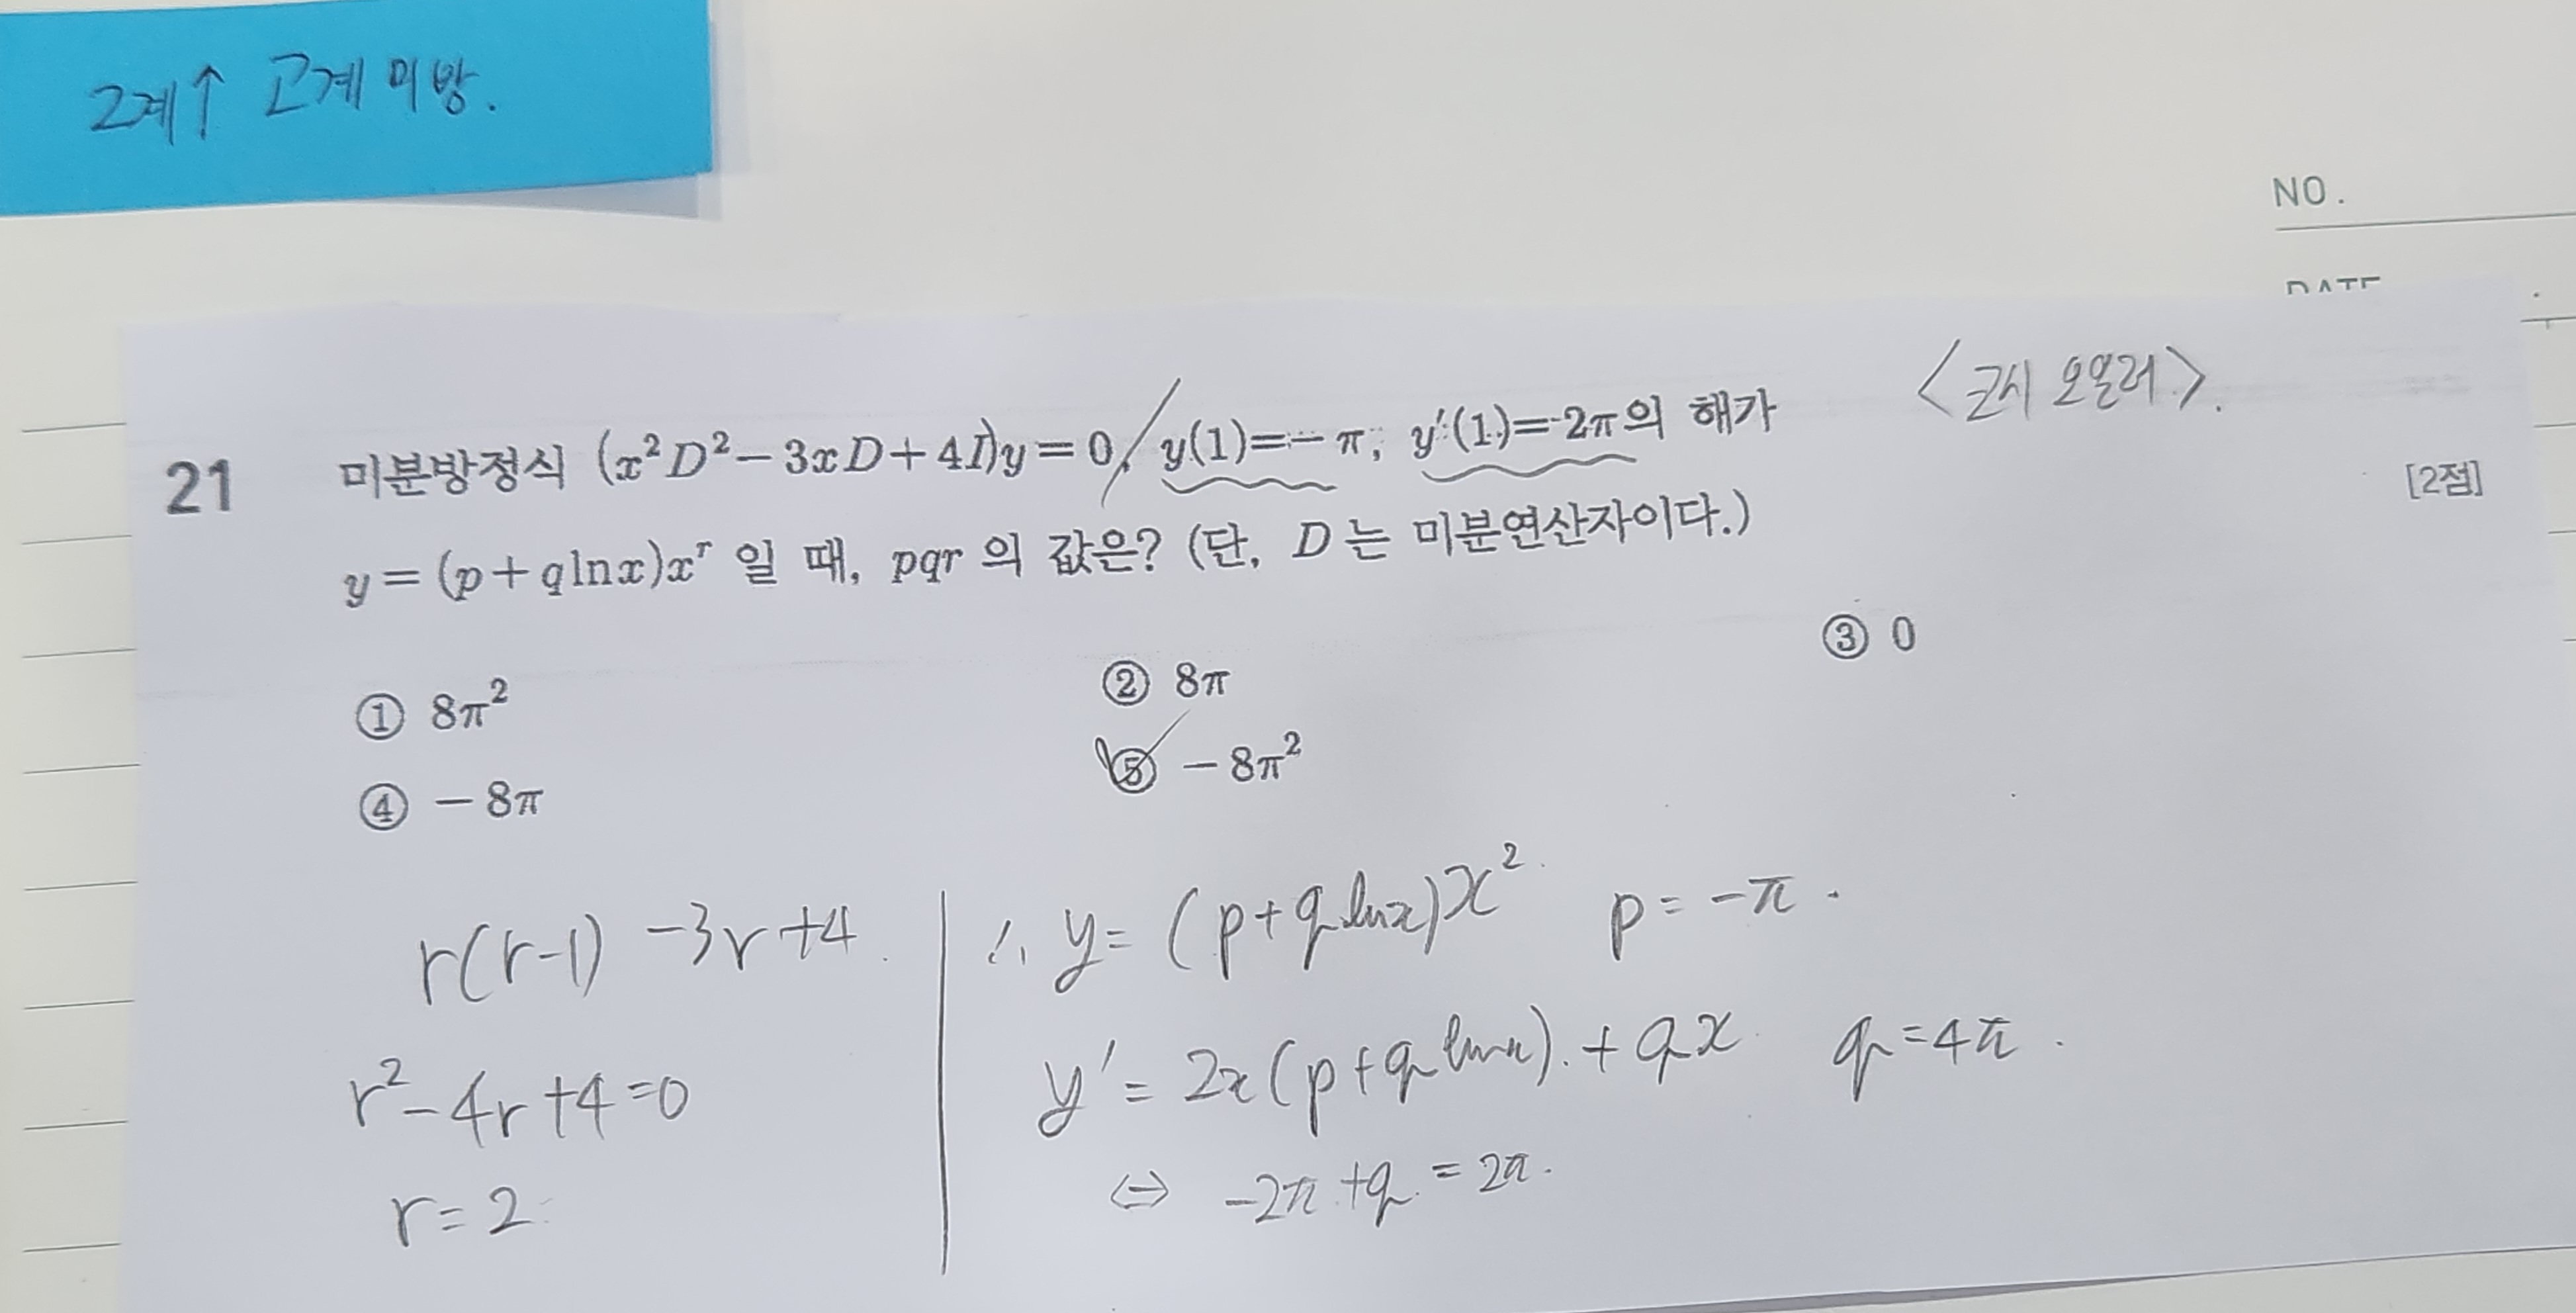 2계↑ 고계 미방.
NO.
DATE
<코시 오일러>.
21 미분방정식 (x²D²－3xD＋4I)y＝0, y(1)＝－π, y′(1)＝2π의 해가
[2점]
y＝(p＋qlnx)xʳ 일 때, pqr 의 값은? (단, D는 미분연산자이다.)
① 8π² ② 8π ③ 0
④ －8π ⑤ －8π²
r(r-1) -3r+4
r²-4r+4=0
r=2
∴ y= (p+q lnx)x² p= -π.
y′= 2x(p+q lnx).+qx q=4π.
⇔ -2π+q = 2π.